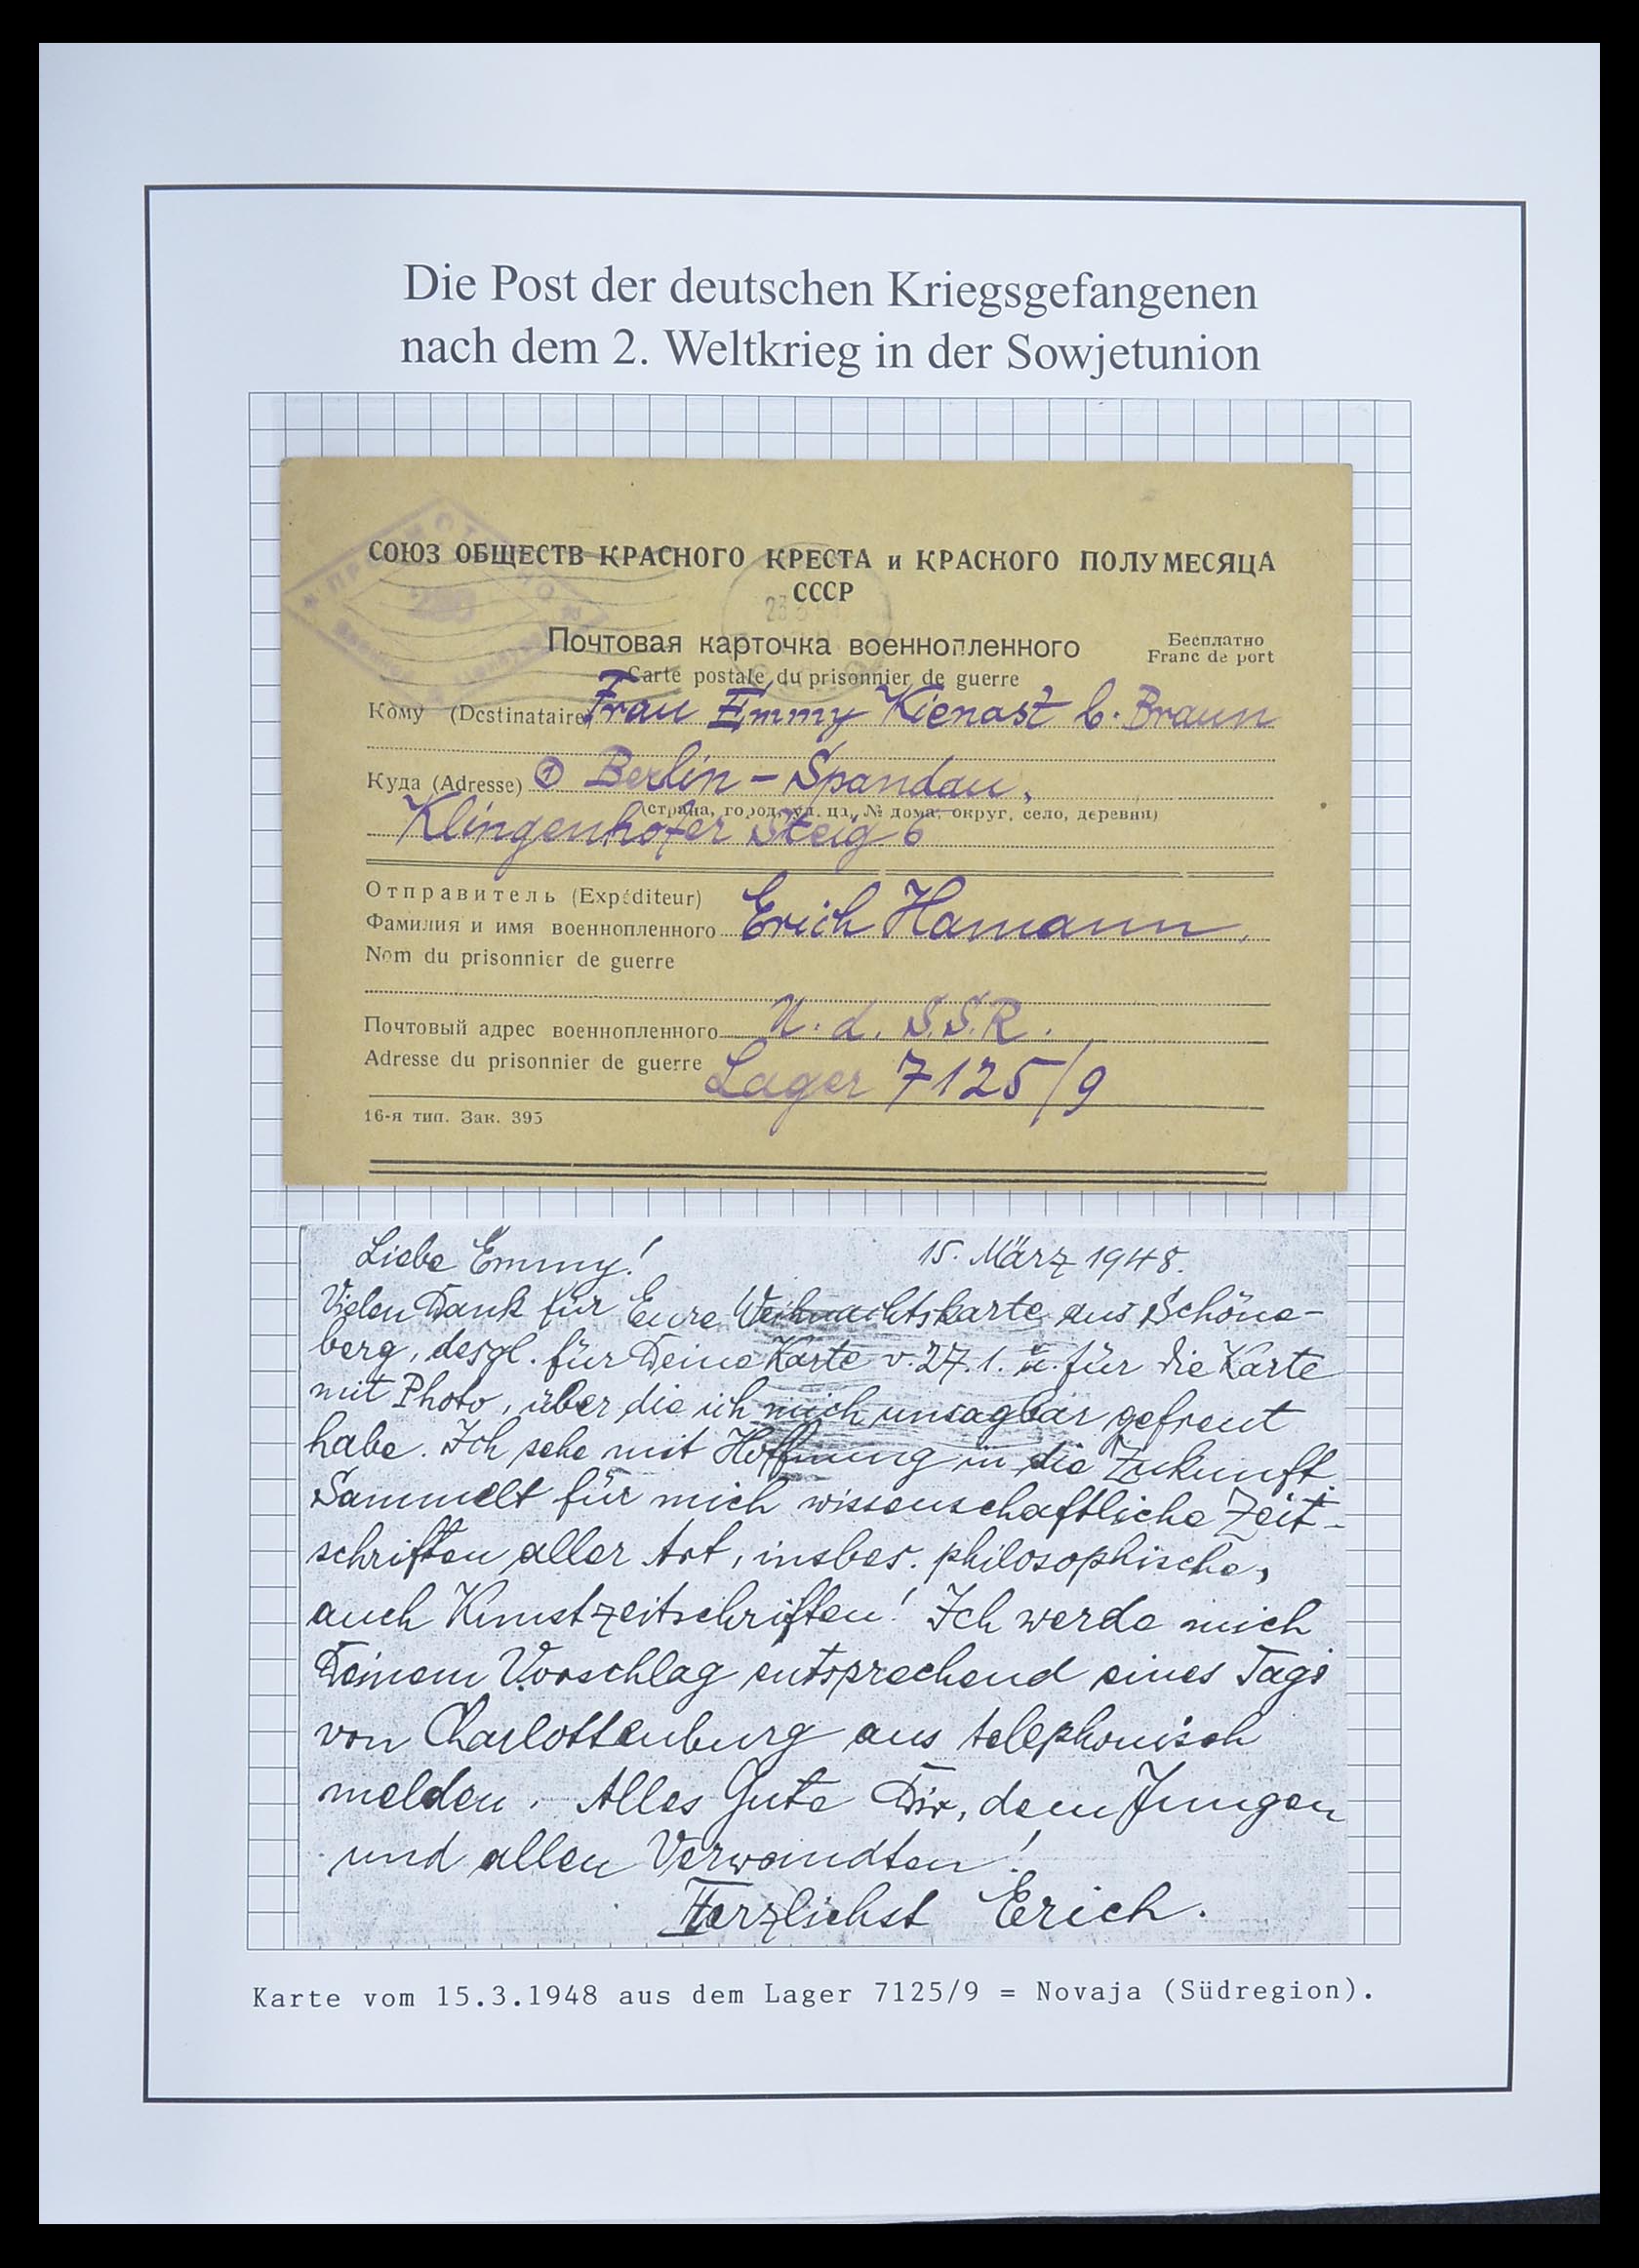 Die Post der deutschen Kriegsgefangenen
nach dem 2. Weltkrieg in der Sowjetunion
СОЮЗ ОБЩЕСТВ КРАСНОГО КРЕСТА и КРАСНОГО ПОЛУМЕСЯЦА
СССР
Почтовая карточка военнопленного
Бесплатно
Franc de port
Carte postale du prisonnier de guerre
Кому (Destinataire) Frau Emmy Kienast b. Braun
Куда (Adresse) ① Berlin - Spandau,
(страна, город, ул. ца, № дома, округ, село, деревня)
Klingenhofer Steig 6
Отправитель (Expéditeur)
Фамилия и имя военнопленного Erich Hamann,
Nom du prisonnier de guerre
Почтовый адрес военнопленного U. d. S.S.R.
Adresse du prisonnier de guerre Lager 7125/9
16-я тип. Зак. 395
Liebe Emmy! 15. März 1948.
Vielen Dank für Eure Weihnachtskarte aus Schöne-
berg, desgl. für Deine Karte v. 27.1. u. für die Karte
mit Photo, über die ich mich unsagbar gefreut
habe. Ich sehe mit Hoffnung in die Zukunft.
Sammelt für mich wissenschaftliche Zeit-
schriften aller Art, insbes. philosophische,
auch Kunstzeitschriften! Ich werde mich
Deinem Vorschlag entsprechend eines Tags
von Charlottenburg aus telephonisch
melden. Alles Gute Dir, dem Jungen
und allen Verwandten!
Herzlichst Erich.
Karte vom 15.3.1948 aus dem Lager 7125/9 = Novaja (Südregion).